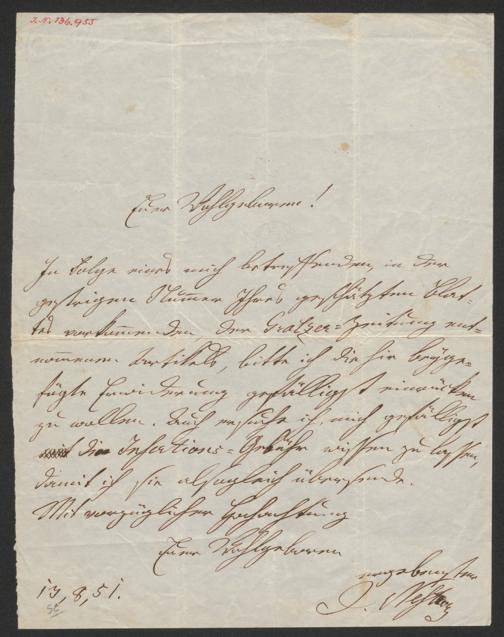 I.N. 136.955
Euer Wohlgeboren!
In Folge eines mich betreffenden, in der
gestrigen Nummer Ihres geschätzten Blat-
tes vorkommenden der Gratzer=Zeitung ent-
nommenen Artikels, bitte ich die hier beyge-
fügte Erwiderung gefälligst einrücken
zu wollen. Auch ersuche ich mich gefälligst
die Insertions=Gebühr wissen zu lassen,
damit ich sie alsogleich übersende.
Mit vorzüglicher Hochachtung
Euer Wohlgeboren
ergebenster
J. Nestroy
17, 8, 51.